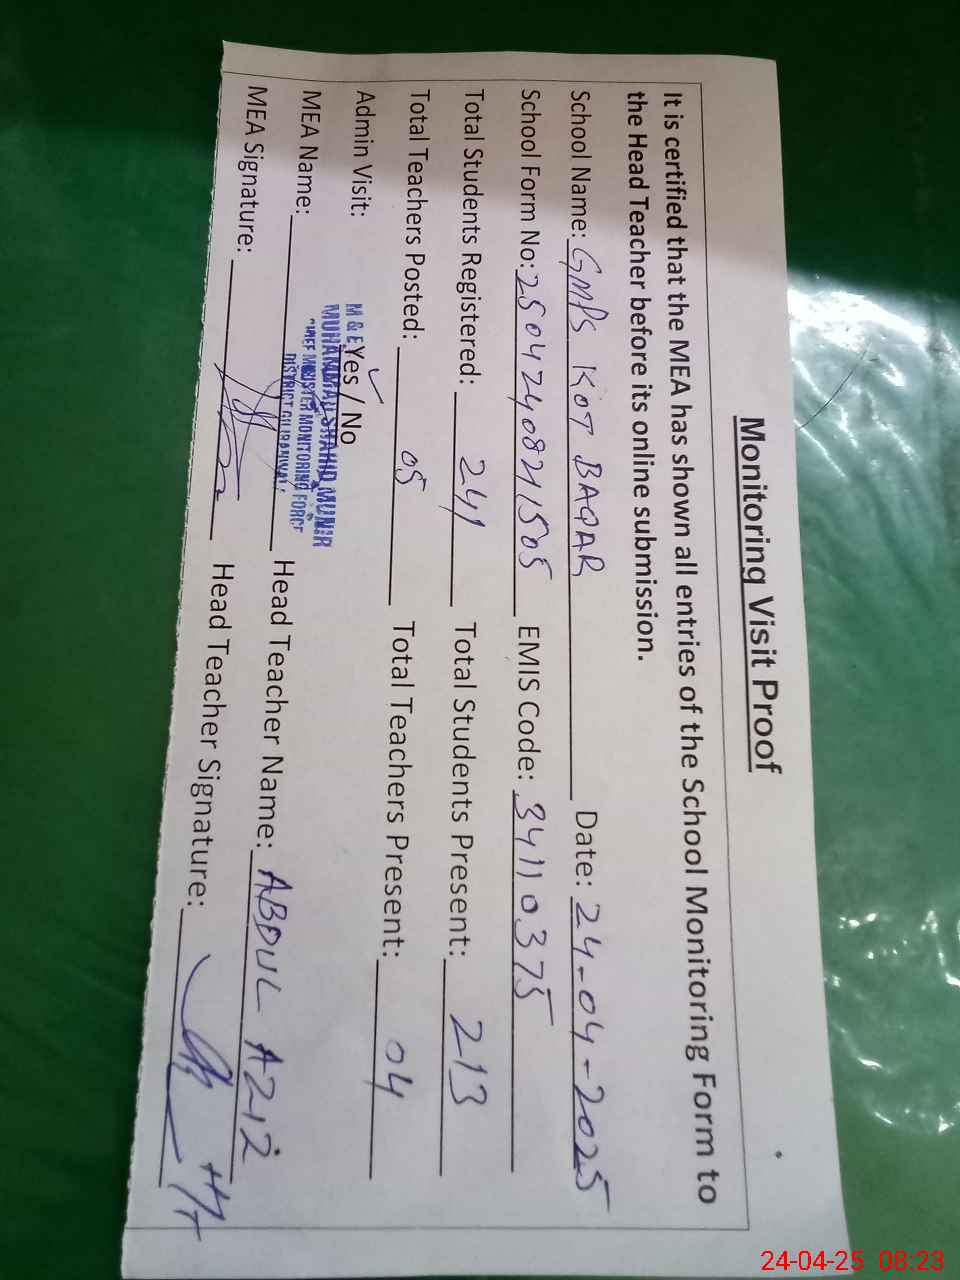 Monitoring Visit Proof
It is certified that the MEA has shown all entries of the School Monitoring Form to
the Head Teacher before its online submission.
School Name: GMPS KOT BAQAR Date: 24-04-2025
School Form No: 25042408211505 EMIS Code: 34110375
Total Students Registered: 241 Total Students Present: 213
Total Teachers Posted: 05 Total Teachers Present: 04
Admin Visit: Yes / No
M & E
MUHAMMAD SHAHID MUNIR
CHIEF MINISTER MONITORING FORCE
DISTRICT GUJRANWALA
MEA Name: Head Teacher Name: ABDUL AZIZ
MEA Signature: Head Teacher Signature:
24-04-25 08:23